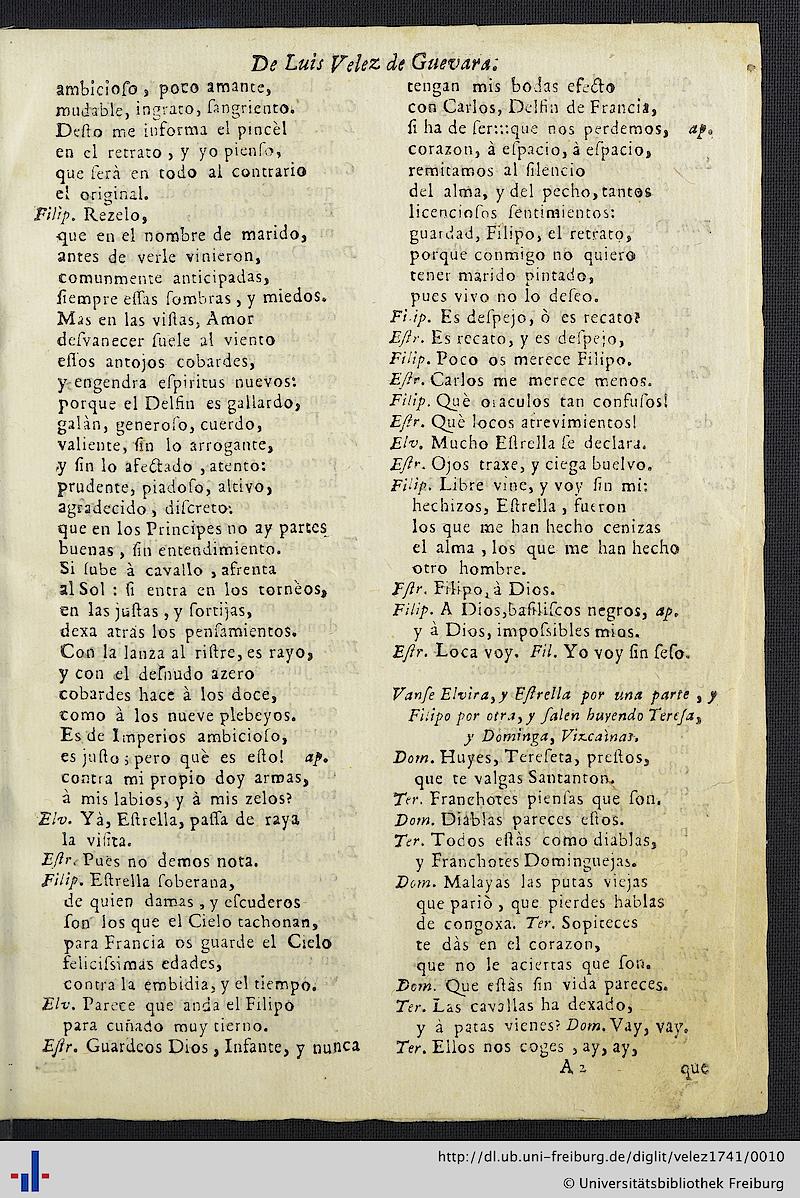 De Luis Velez de Guevara.
ambicioſo, poco amante,
mudable, ingrato, ſangriento.
Deſto me informa el pincèl
en el retrato, y yo pienſo,
que ſerà en todo al contrario
el original.
Filip. Rezelo,
que en el nombre de marido,
antes de verle vinieron,
comunmente anticipadas,
ſiempre eſſas ſombras, y miedos.
Mas en las viſtas, Amor
deſvanecer ſuele al viento
eſſos antojos cobardes,
y engendra eſpiritus nuevos:
porque el Delfin es gallardo,
galàn, generoſo, cuerdo,
valiente, ſin lo arrogante,
y ſin lo afectado, atento:
prudente, piadoſo, altivo,
agradecido, diſcreto:
que en los Principes no ay partes
buenas, ſin entendimiento.
Si ſube à cavallo, afrenta
al Sol: ſi entra en los tornèos,
en las juſtas, y ſortijas,
dexa atràs los penſamientos.
Con la lanza al riſtre, es rayo,
y con el deſnudo azero
cobardes hace à los doce,
como à los nueve plebeyos.
Es de Imperios ambicioſo,
es juſto; pero què es eſto! ap.
contra mi propio doy armas,
à mis labios, y à mis zelos?
Elv. Yà, Eſtrella, paſſa de raya
la viſita.
Eſtr. Pues no demos nota.
Filip. Eſtrella ſoberana,
de quien damas, y eſcuderos
ſon los que el Cielo tachonan,
para Francia os guarde el Cielo
feliciſsimas edades,
contra la embidia, y el tiempo.
Elv. Parece que anda el Filipo
para cuñado muy tierno.
Eſtr. Guardeos Dios, Infante, y nunca
tengan mis bodas efecto
con Carlos, Delfin de Francia,
ſi ha de ſer:::que nos perdemos, ap.
corazon, à eſpacio, à eſpacio,
remitamos al ſilencio
del alma, y del pecho, tantos
licencioſos ſentimientos:
guardad, Filipo, el retrato,
porque conmigo no quiero
tener marido pintado,
pues vivo no lo deſeo.
Filip. Es deſpejo, ò es recato?
Eſtr. Es recato, y es deſpejo,
Filip. Poco os merece Filipo.
Eſtr. Carlos me merece menos.
Filip. Què oraculos tan confuſos!
Eſtr. Què locos atrevimientos!
Elv. Mucho Eſtrella ſe declara.
Eſtr. Ojos traxe, y ciega buelvo.
Filip. Libre vine, y voy ſin mi:
hechizos, Eſtrella, fueron
los que me han hecho cenizas
el alma, los que me han hecho
otro hombre.
Eſtr. Filipo, à Dios.
Filip. A Dios, baſiliſcos negros, ap.
y à Dios, impoſsibles mios.
Eſtr. Loca voy. Fil. Yo voy ſin ſeſo.
Vanſe Elvira, y Eſtrella por una parte, y
Filipo por otra, y ſalen huyendo Tereſa,
y Dominga, Vizcainas.
Dom. Huyes, Tereſeta, preſtos,
que te valgas Santanton.
Ter. Franchotes pienſas que ſon.
Dom. Diablas pareces eſtos.
Ter. Todos eſtàs como diablas,
y Franchotes Dominguejas.
Dom. Malayas las putas viejas
que pariò, que pierdes hablas
de congoxa. Ter. Sopiteces
te dàs en el corazon,
que no le aciertas que ſon.
Dom. Que eſtàs ſin vida pareces.
Ter. Las cavallas ha dexado,
y à patas vienes? Dom. Vay, vay.
Ter. Ellos nos coges, ay, ay,
A 2 que
http://dl.ub.uni-freiburg.de/diglit/velez1741/0010
© Universitätsbibliothek Freiburg